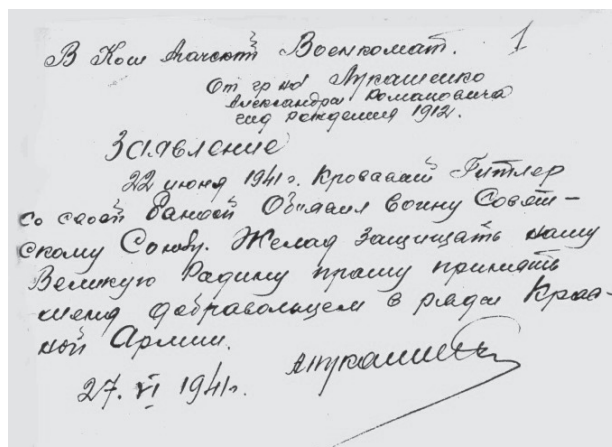 В Кош Агачский Военкомат. 1
От гр на Лукашенко
Александра Романовича
год рождения 1912.
Заявление
22 июня 1941г. Кровавай Гитлер
со своей бандой Обявил воину Совет-
скому Союзу. Желая защищать нашу
Великую Радину прашу принять
меня добравольцем в ряды Крас-
ной Армии.
27. VI 1941г.